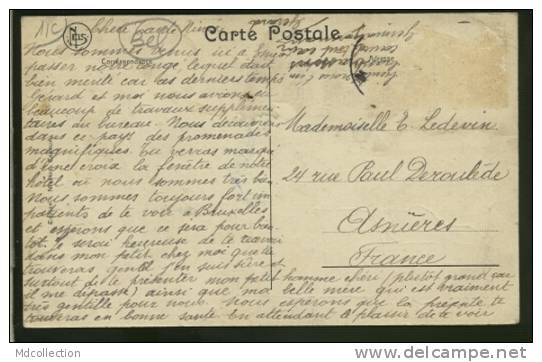 11c
Carte Postale
Correspondance
Adresse
Chère
Nous sommes venus ici à
passer notre congé lequel était
bien mérité car ces derniers temps
Gérard et moi nous avons eu
beaucoup de travaux supplémen
taires du bureau. Nous découvrons
dans ce pays des promenades
magnifiques. Tu verras marqué
d'une croix la fenêtre de notre
hôtel où nous sommes très bien
Nous sommes toujours fort im
patients de te voir à Bruxelles
et espérons que ce sera pour bien
tôt. Je serai heureuse de te
dans mon petit chez moi que tu
trouveras gentil j'en suis sûre et
surtout de te présenter mon petit homme chéri (plutôt grand car
il me dépasse) ainsi que ma belle mère qui est vraiment
très gentille pour nous. Nous espérons que la présente te
trouvera en bonne santé En attendant le plaisir de te voir
Gérard
Mademoiselle E. Ledevin
24 rue Paul Deroulède
Asnières
France
Mdcollection
www.delcampe.net